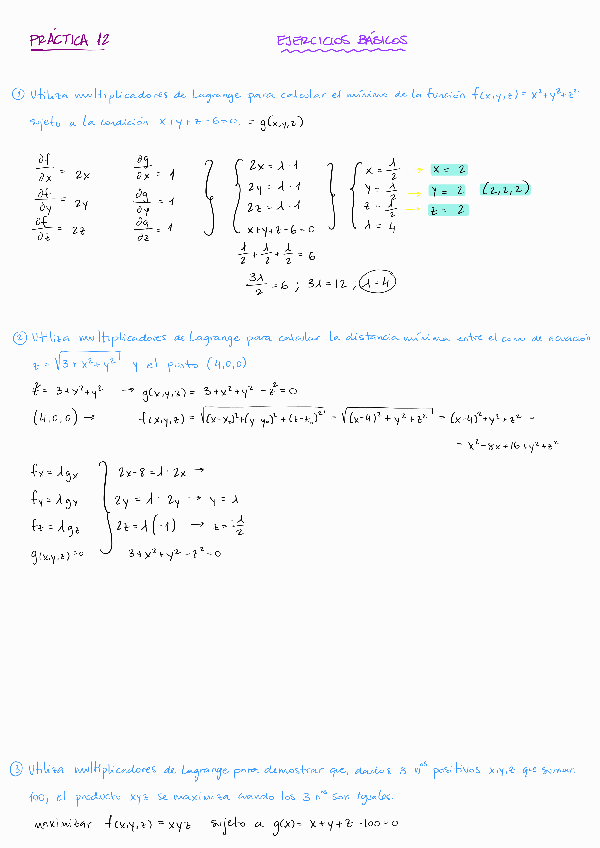 PRÁCTICA 12
EJERCICIOS BÁSICOS
① Utiliza multiplicadores de Lagrange para calcular el mínimo de la función f(x,y,z) = x²+y²+z²
sujeto a la condición x+y+z-6=0. = g(x,y,z)
∂f/∂x = 2x ∂g/∂x = 1 2x = λ·1 x = λ/2 → x = 2
∂f/∂y = 2y ∂g/∂y = 1 2y = λ·1 y = λ/2 → y = 2 (2,2,2)
∂f/∂z = 2z ∂g/∂z = 1 2z = λ·1 z = λ/2 → z = 2
x+y+z-6=0 λ = 4
λ/2 + λ/2 + λ/2 = 6
3λ/2 = 6 ; 3λ = 12 , λ = 4
② Utiliza multiplicadores de Lagrange para calcular la distancia mínima entre el cono de ecuación
z = √3 + x² + y² y el punto (4,0,0)
z² = 3+x²+y² → g(x,y,z) = 3+x²+y²-z²=0
(4,0,0) → f(x,y,z) = √(x-x₀)²+(y-y₀)²+(z-z₀)² = √(x-4)²+y²+z² = (x-4)²+y²+z² =
= x²-8x+16+y²+z²
fx = λgx 2x-8 = λ·2x →
fy = λgy 2y = λ·2y → y = λ
fz = λgz 2z = λ(-1) → z = -λ/2
g(x,y,z)=0 3+x²+y²-z²=0
③ Utiliza multiplicadores de Lagrange para demostrar que, dados 3 nºs positivos x,y,z que suman
100, el producto xyz se maximiza cuando los 3 nºs son iguales.
maximizar f(x,y,z) = xyz sujeto a g(x) = x+y+z-100=0